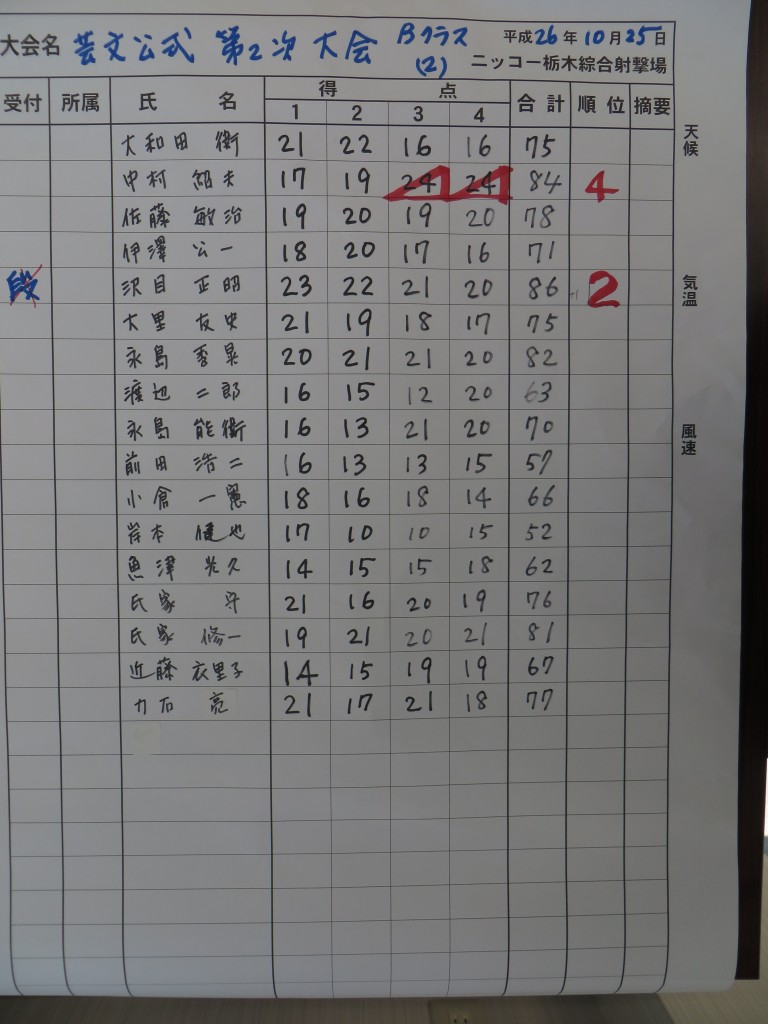 大会名 芸文公式 第2次 大会 Bクラス (2) 平成26年10月25日
ニッコー栃木綜合射撃場
受付 所属 氏 名 得 点 合計 順位 摘要
1 2 3 4
大和田 衛 21 22 16 16 75
中村 紹夫 17 19 24 24 84 4
佐藤 敏治 19 20 19 20 78
伊澤 公一 18 20 17 16 71
段 沢目 正昭 23 22 21 20 86 2
大里 友史 21 19 18 17 75
永島 秀晃 20 21 21 20 82
渡辺 二郎 16 15 12 20 63
永島 能衛 16 13 21 20 70
前田 浩二 16 13 13 15 57
小倉 一憲 18 16 18 14 66
岸本 健也 17 10 10 15 52
魚津 光久 14 15 15 18 62
氏家 守 21 16 20 19 76
氏家 修一 19 21 20 21 81
近藤 衣里子 14 15 19 19 67
力石 亮 21 17 21 18 77
天候
気温
風速